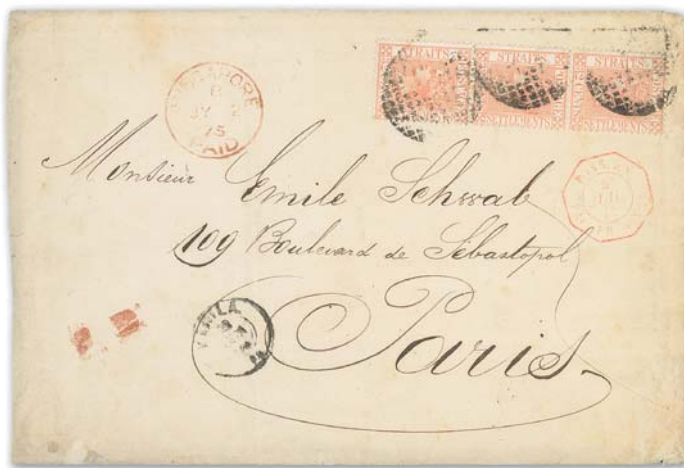 STRAITS STRAITS STRAITS
SETTLEMENTS SETTLEMENTS
SINGAPORE
B
JY
75
PAID
Monsieur Emile Schwab
109 Boulevard de Sébastopol
Paris